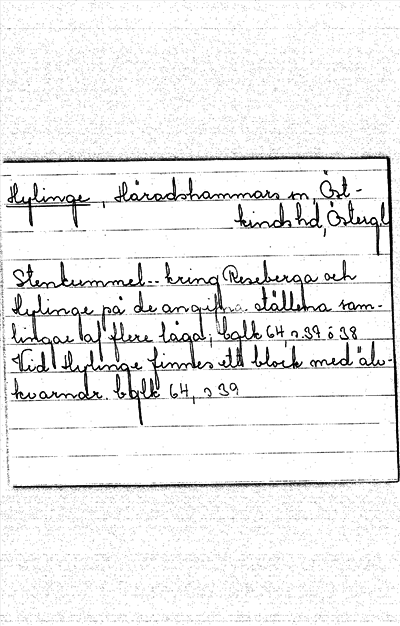 Hylinge, Häradshammars sn, Öst-
kinds hd, Östergl
Stenkummel.. kring Reseberga och
Hylinge på de angifna ställena sam-
lingar af flere lågo, bglk 64, s 39 o 38
Vid Hylinge finnes ett block med älv-
kvarnar. bglk 64, s 39